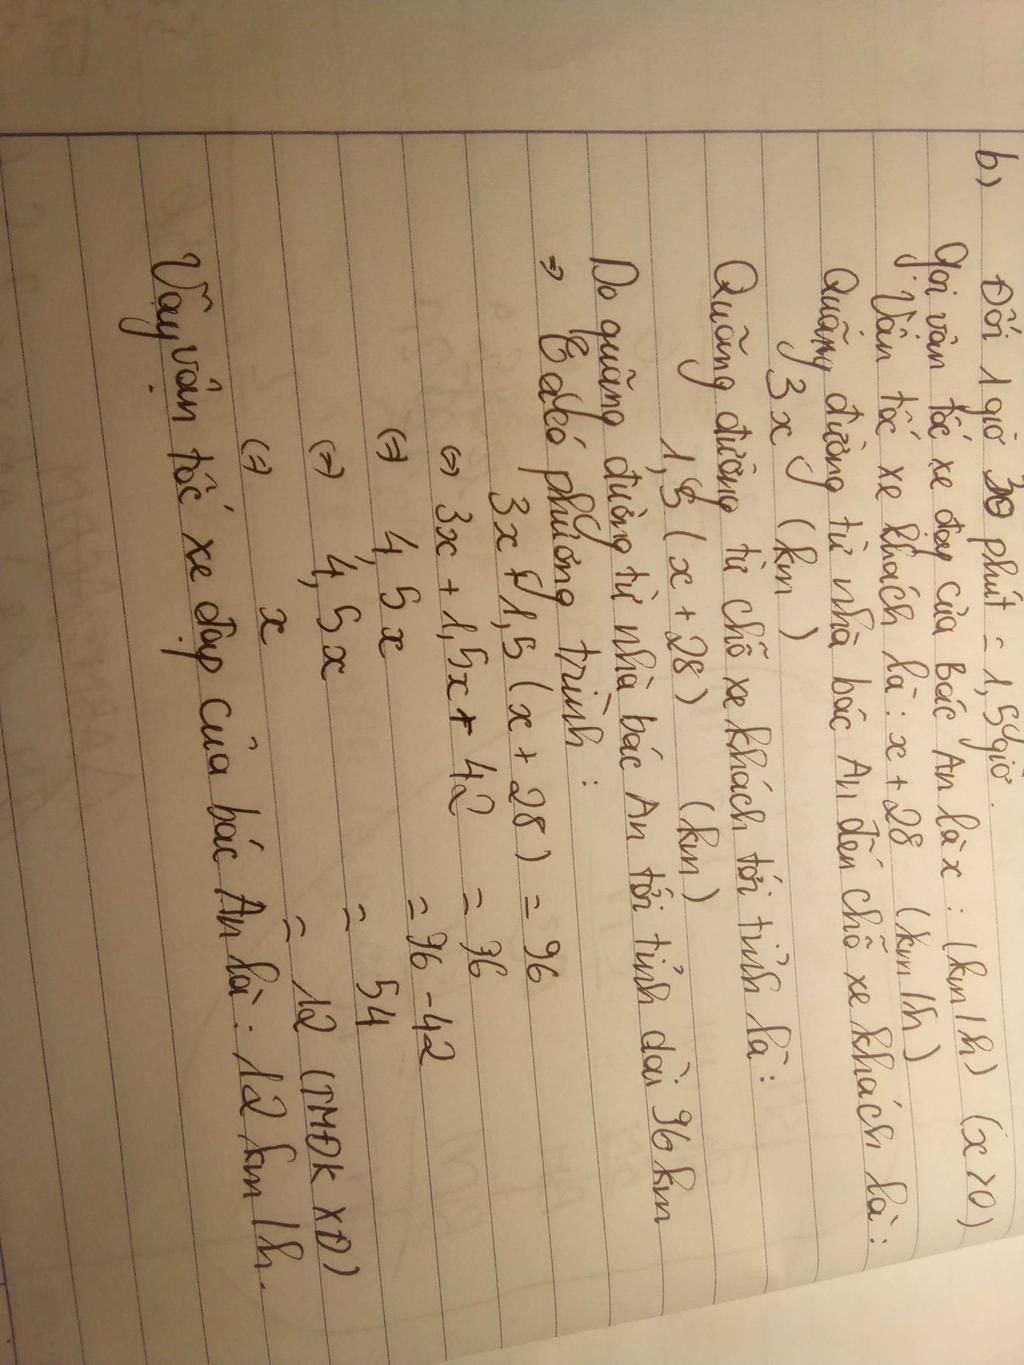 b) Đổi 1 giờ 30 phút = 1,5 giờ.
Gọi vận tốc xe đạp của Bác An là x : (km/h) (x>0)
Vận tốc xe khách là : x + 28 (km/h)
Quãng đường từ nhà bác An đến chỗ xe khách là :
3x (km)
Quãng đường từ chỗ xe khách tới tỉnh là :
1,5 (x + 28) (km)
Do quãng đường từ nhà bác An tới tỉnh dài 96 km
⇒ Ta có phương trình :
3x + 1,5 (x + 28) = 96
⇔ 3x + 1,5x + 42 = 96
⇔ 4,5x = 96 - 42
⇔ 4,5x = 54
⇔ x = 12 (TMĐK XĐ)
Vậy vận tốc xe đạp của bác An là : 12 km/h.